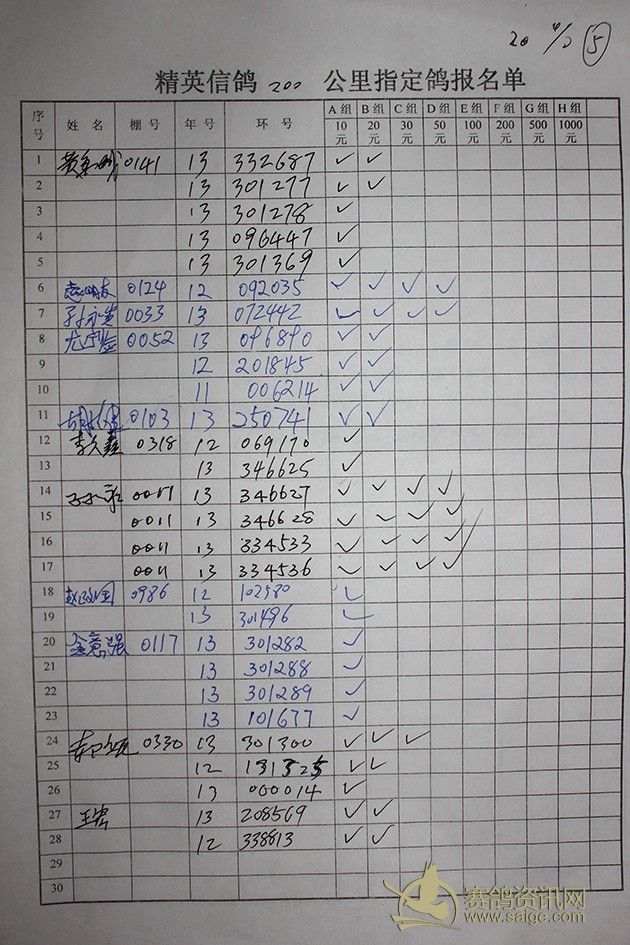 20 4/2 ⑤
精英信鸽 200 公里指定鸽报名单
序号 姓 名 棚 号 年 号 环 号 A组 10元 B组 20元 C组 30元 D组 50元 E组 100元 F组 200元 G组 500元 H组 1000元
1 0141 13 332687 ✓ ✓
2 13 301277 ✓ ✓
3 13 301278 ✓
4 13 096447 ✓
5 13 301369 ✓
6 0124 12 092035 ✓ ✓ ✓ ✓
7 孙永贵 0033 13 072442 ✓ ✓ ✓ ✓
8 0052 13 096890 ✓ ✓
9 12 201845 ✓ ✓
10 11 006214 ✓ ✓
11 0103 13 250741 ✓ ✓
12 李久鑫 0318 12 069170 ✓
13 13 346625 ✓
14 0011 13 346627 ✓ ✓ ✓ ✓
15 0011 13 346628 ✓ ✓ ✓ ✓
16 0011 13 334533 ✓ ✓ ✓ ✓
17 0011 13 334536 ✓ ✓ ✓ ✓
18 赵政国 0986 12 102580 ✓
19 13 301496 ✓
20 0117 13 301282 ✓
21 13 301288 ✓
22 13 301289 ✓
23 13 101677 ✓
24 0330 13 301300 ✓ ✓ ✓
25 12 ✓ ✓
26 13 000014 ✓
27 王宏 13 208569 ✓ ✓
28 12 338813 ✓ ✓
29
30
赛鸽资讯网
www.saige.com